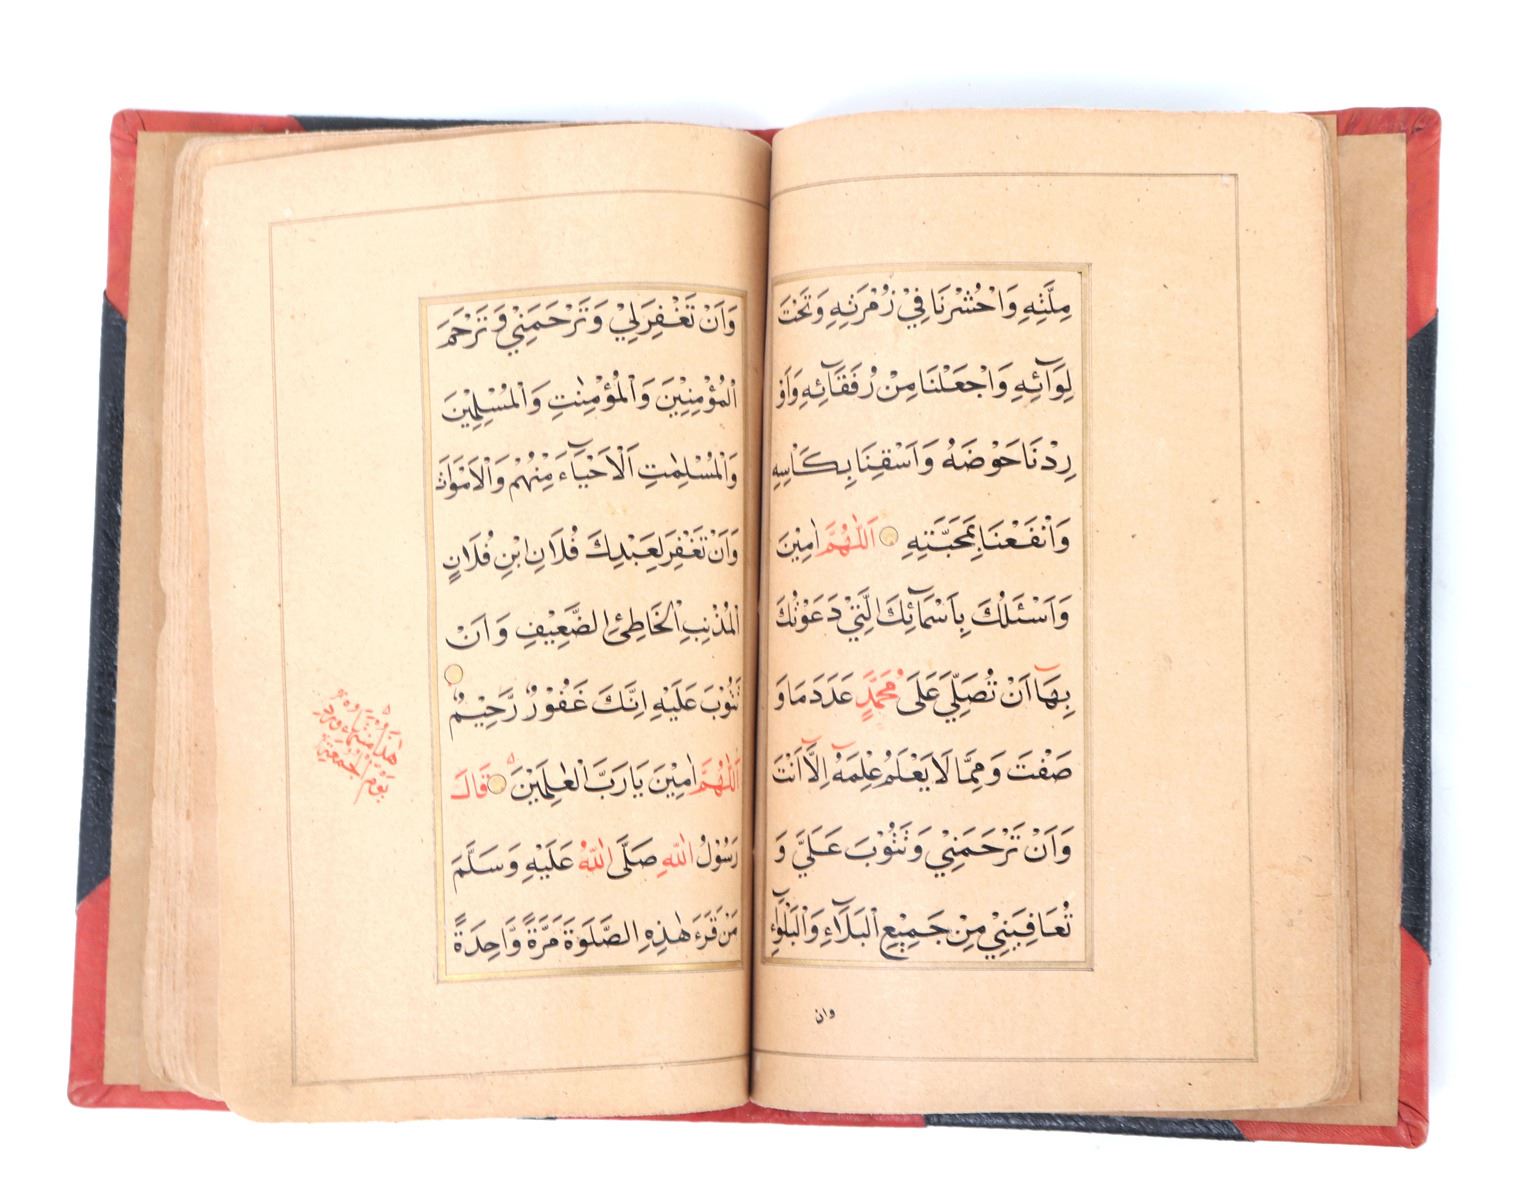 مِلَّتِهِ وَاحْشُرْنَا فِيْ زُمْرَتِهِ وَتَحْتَ
لِوَآئِهِ وَاجْعَلْنَا مِنْ رُفَقَآئِهِ وَاَوْ
رِدْنَا حَوْضَهُ وَاَسْقِنَا بِكَاْسِهِ
وَانْفَعْنَا بِمَحَبَّتِهِ اَللّٰهُمَّ اٰمِيْنَ
وَاَسْئَلُكَ بِاَسْمَآئِكَ الَّتِيْ دَعَوْتُكَ
بِهَآ اَنْ تُصَلِّيَ عَلَى مُحَمَّدٍ عَدَدَ مَا وَ
صَفْتَ وَمِمَّا لَا يَعْلَمُ عِلْمَهُٓ اِلَّآ اَنْتَ
وَاَنْ تَرْحَمَنِيْ وَتَتُوْبَ عَلَيَّ وَ
تُعَافِيَنِيْ مِنْ جَمِيْعِ الْبَلَآءِ وَالْبَلْوَآءِ
وان
وَاَنْ تَغْفِرَلِيْ وَتَرْحَمَنِيْ وَتَرْحَمَ
الْمُؤْمِنِيْنَ وَالْمُؤْمِنٰتِ وَالْمُسْلِمِيْنَ
وَالْمُسْلِمٰتِ اَلْاَحْيَآءَ مِنْهُمْ وَالْاَمْوَاتَ
وَاَنْ تَغْفِرَ لِعَبْدِكَ فُلَانِ ابْنِ فُلَانٍ
الْمُذْنِبِ الْخَاطِئِ الضَّعِيْفِ وَاَنْ
تَتُوْبَ عَلَيْهِ اِنَّكَ غَفُوْرٌ رَّحِيْمٌ
اَللّٰهُمَّ اٰمِيْنَ يَا رَبَّ الْعٰلَمِيْنَ قَالَ
رَسُوْلُ اللّٰهِ صَلَّى اللّٰهُ عَلَيْهِ وَسَلَّمَ
مَنْ قَرَءَ هٰذِهِ الصَّلٰوةَ مَرَّةً وَّاحِدَةً
يَوْمِ الْجُمُعَةِ